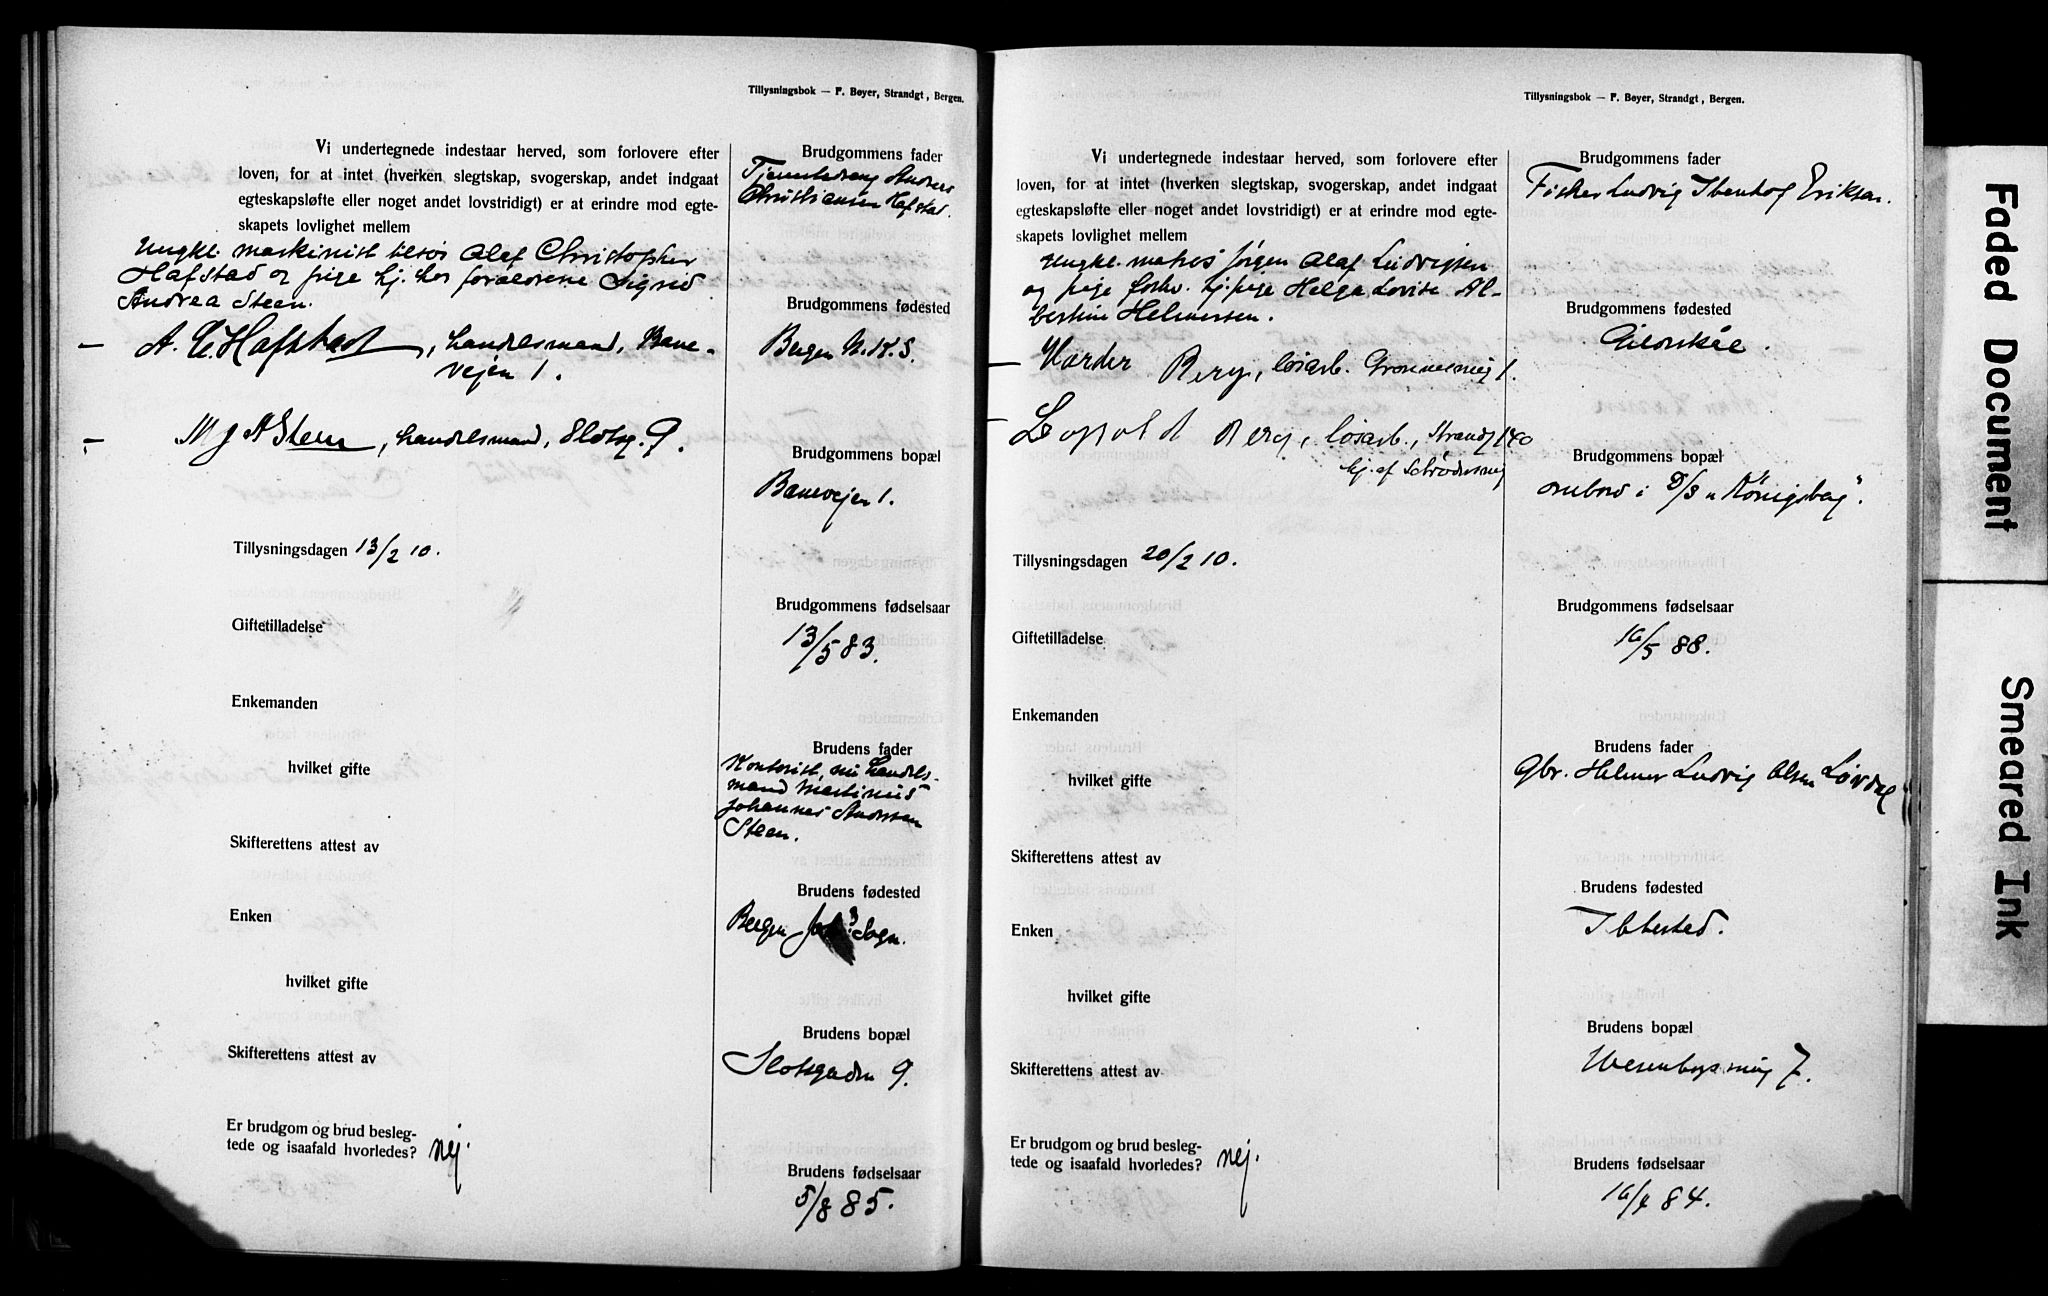 Tillysningsbok — F. Bøyer, Strandgt, Bergen.
Vi undertegnede indestaar herved, som forlovere efter
loven, for at intet (hverken slegtskap, svogerskap, andet indgaat
egteskapsløfte eller noget andet lovstridigt) er at erindre mod egte-
skapets lovlighet mellem
Ungkl. maskinist tilsøs Olaf Christopher
Hafstad og pige hj. hos forældrene Sigrid
Andrea Steen.
— A. C. Hafstad, handelsmand, Bane-
vejen 1.
— M J A Steen, handelsmand, Slotsg. 9.
Tillysningsdagen 13/2 10.
Giftetilladelse
Enkemanden
hvilket gifte
Skifterettens attest av
Enken
hvilket gifte
Skifterettens attest av
Er brudgom og brud besleg-
tede og isaafald hvorledes? nej.
Brudgommens fader
Tjenestedreng Anders
Christiansen Hafstad.
Brudgommens fødested
Bergen N. K. S.
Brudgommens bopæl
Banevejen 1.
Brudgommens fødselsaar
13/5 83.
Brudens fader
Kontorist, nu handels-
mand Martinus
Johannes Andersen
Steen.
Brudens fødested
Bergen Sogn.
Brudens bopæl
Slotsgaden 9.
Brudens fødselsaar
5/8 85.
Tillysningsbok — F. Bøyer, Strandgt, Bergen.
Vi undertegnede indestaar herved, som forlovere efter
loven, for at intet (hverken slegtskap, svogerskap, andet indgaat
egteskapsløfte eller noget andet lovstridigt) er at erindre mod egte-
skapets lovlighet mellem
Ungkl. matros Jørgen Olaf Ludvigsen
og pige forhv. tj. pige Helga Lovise Al-
bertine Helmersen.
— Berg, løsarb. 1.
— Leopold Berg, løsarb., Strandg 140
hj. af Schrødersmug
Tillysningsdagen 20/2 10.
Giftetilladelse
Enkemanden
hvilket gifte
Skifterettens attest av
Enken
hvilket gifte
Skifterettens attest av
Er brudgom og brud besleg-
tede og isaafald hvorledes? nej.
Brudgommens fader
Fisker Ludvig Ibenhof Eriksen.
Brudgommens fødested
Gildeskål.
Brudgommens bopæl
ombord i D/S "Königsberg".
Brudgommens fødselsaar
16/5 88.
Brudens fader
Gbr. Helmer Ludvig Olsen Løvdal
Brudens fødested
Ibbested.
Brudens bopæl
Wesenbergsmug 7.
Brudens fødselsaar
16/4 84.
Faded Document
Smeared Ink